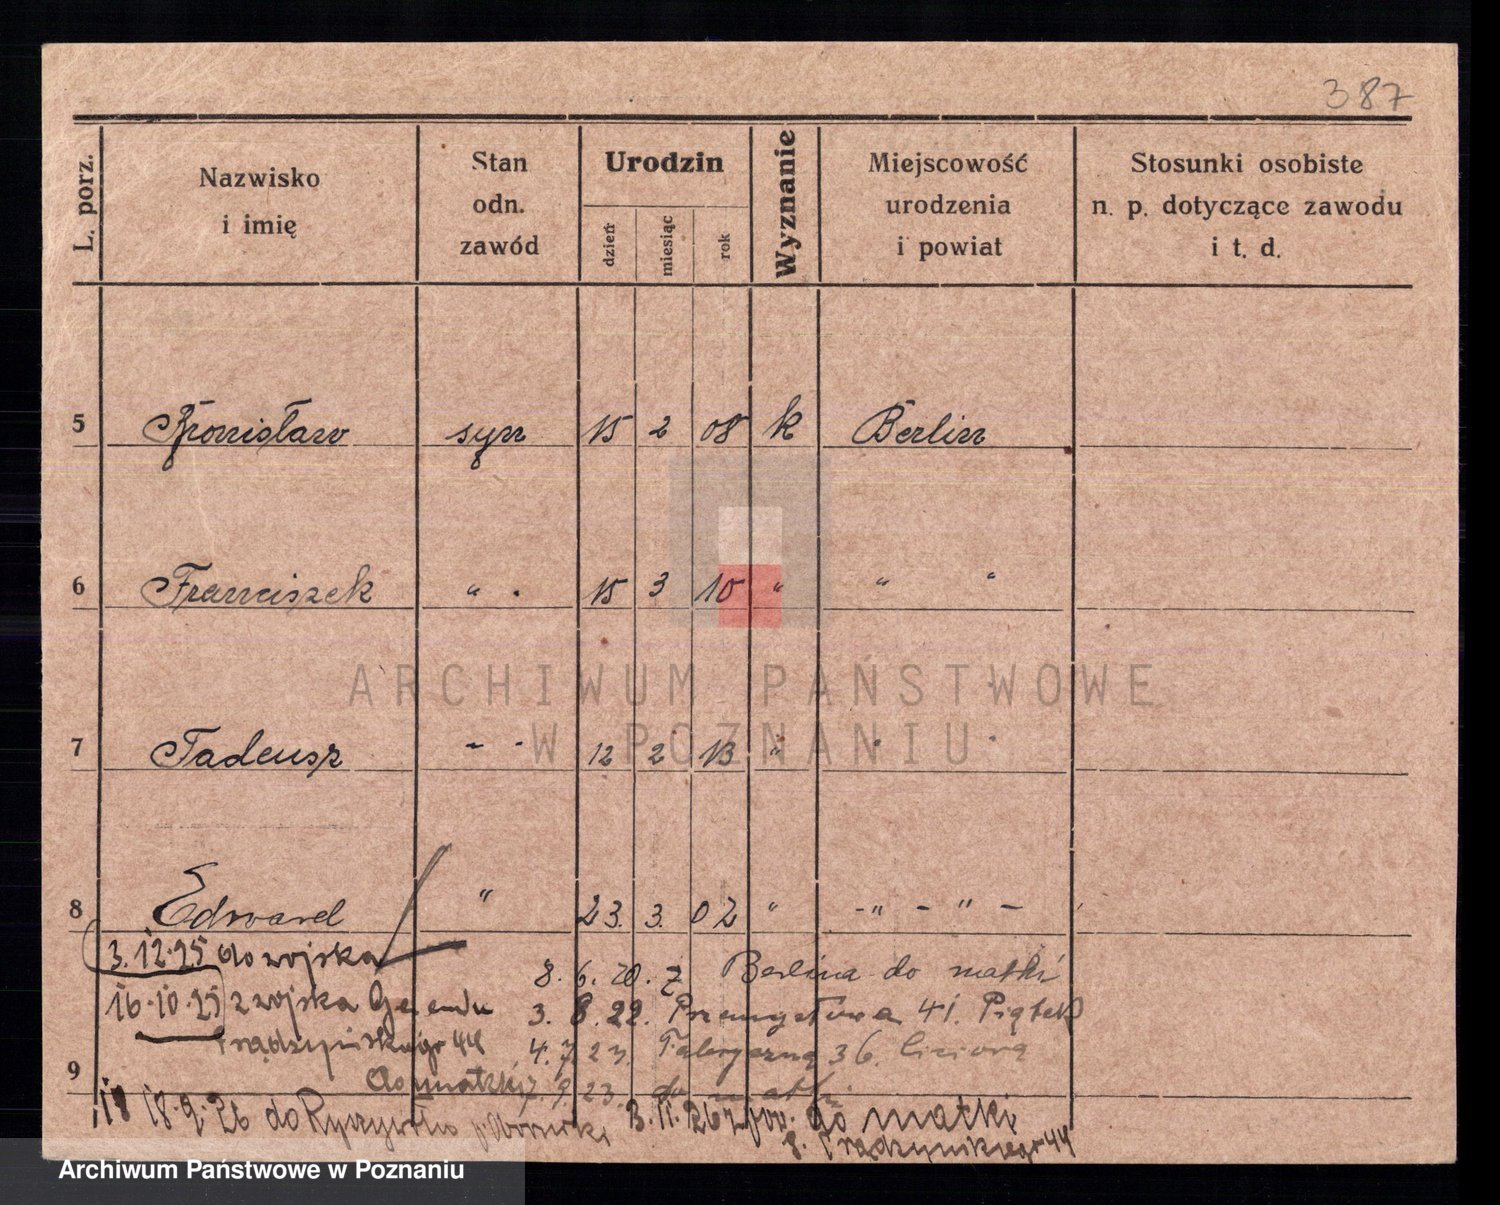 387
L. porz.
Nazwisko
i imię
Stan
odn.
zawód
Urodzin
dzień
miesiąc
rok
Wyznanie
Miejscowość
urodzenia
i powiat
Stosunki osobiste
n. p. dotyczące zawodu
i t. d.
5 Bronisław syn 15 2 08 k Berlin
6 Franciszek " " 15 3 10 " " "
ARCHIWUM PAŃSTWOWE
W POZNANIU
7 Tadeusz " " 12 2 13 " " "
8 Edward " 23. 3. 02 " -"- "-
3.12.25 do wojska
8. 6. 20. z Berlina do matki
16.10.25 z wojska
3. 8. 22. Przemysłowa 41. Piątek
Prądzyńskiego 44
4. 7. 23. Fabryczna 36.
do matki
7. 9. 23. do matki
9
18.9.26 do Ryczywołu p. Obornicki
3.11.26 z pow. do matki
Prądzyńskiego 44
Archiwum Państwowe w Poznaniu